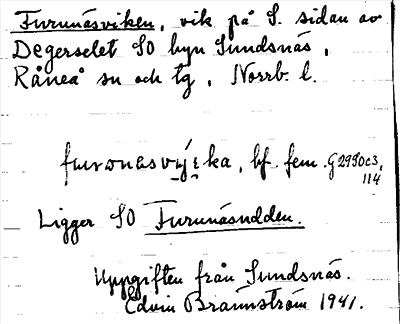 Furunäsviken, vik på S. sidan av
Degerselet SO byn Sundsnäs,
Råneå sn och tg, Norrb. l.
bf. fem. G2930c3,
114
Ligger SO Furunäsudden.
Uppgiften från Sundsnäs.
Edvin Brännström 1941.